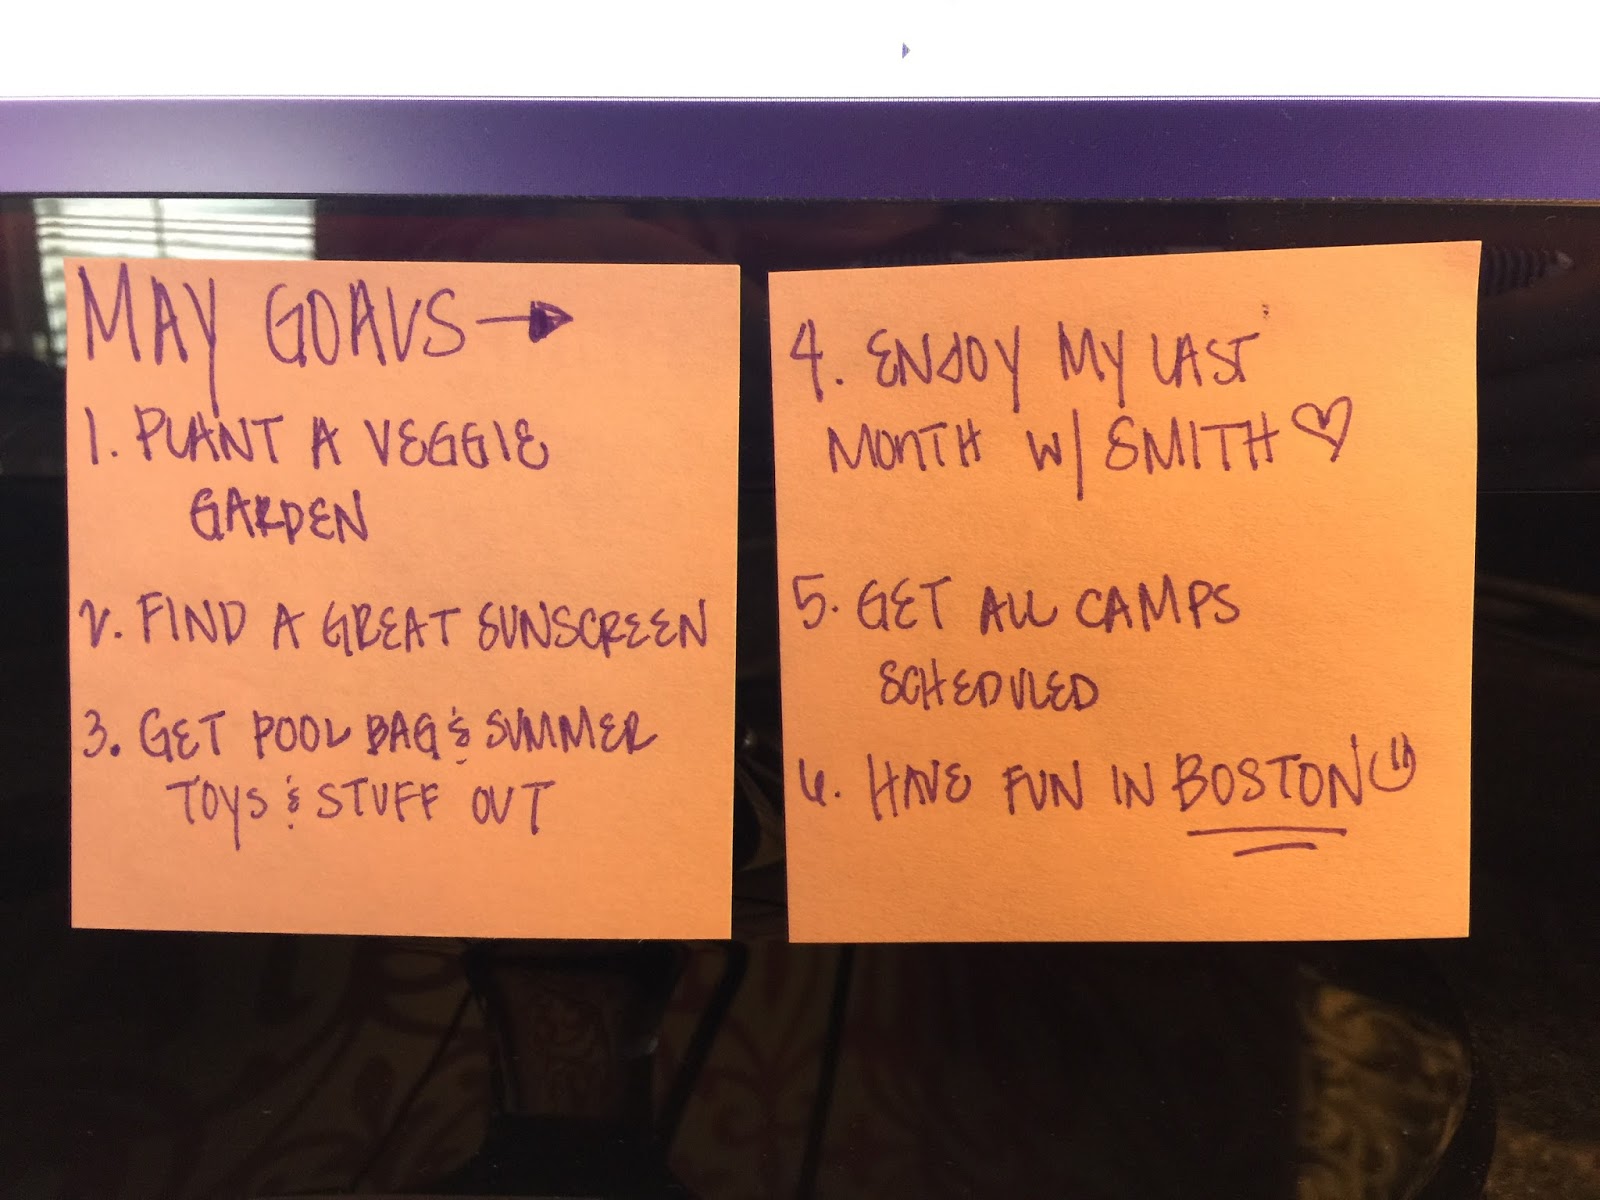 MAY GOALS →
1. PLANT A VEGGIE
GARDEN
2. FIND A GREAT SUNSCREEN
3. GET POOL BAG & SUMMER
TOYS & STUFF OUT
4. ENJOY MY LAST
MONTH W/ SMITH ♡
5. GET ALL CAMPS
SCHEDULED
6. HAVE FUN IN BOSTON ☺